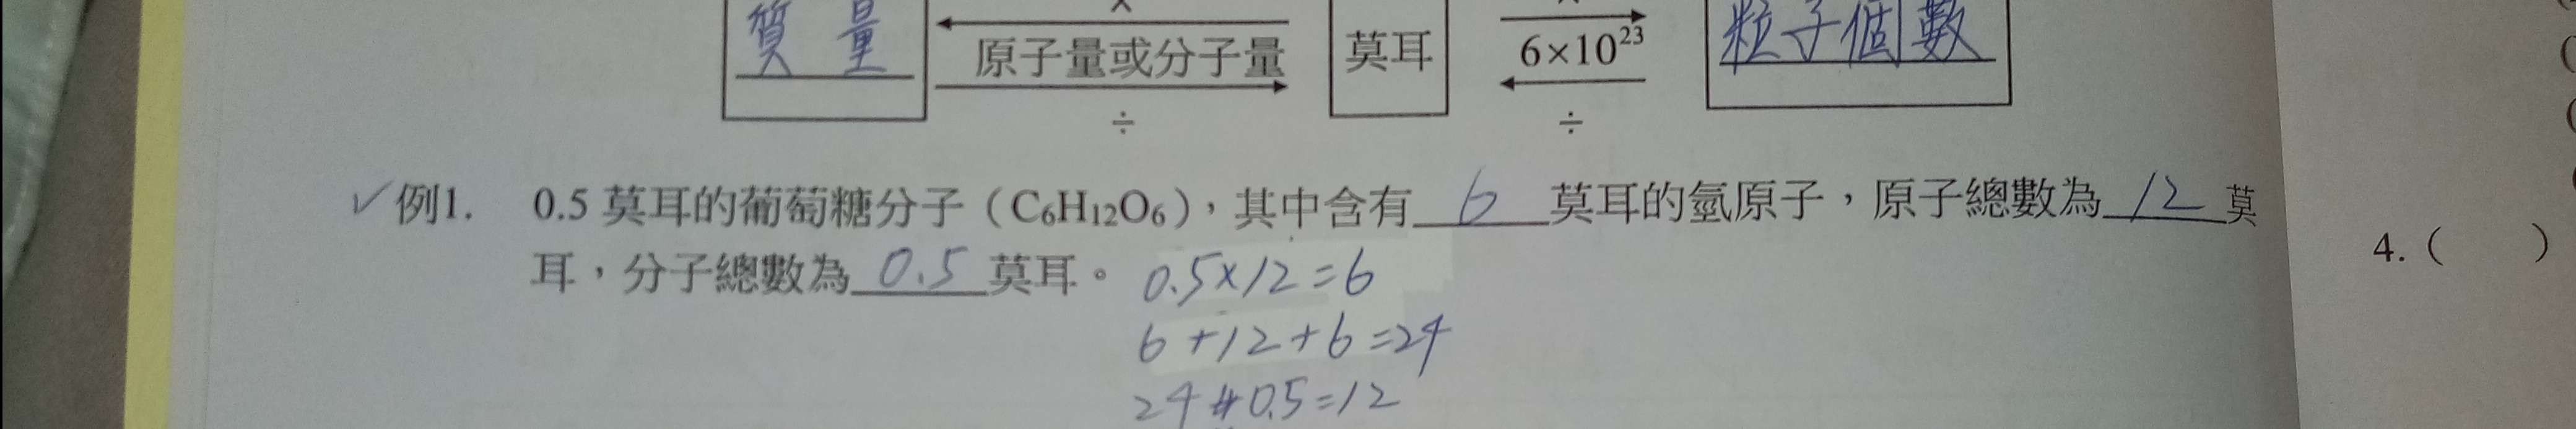 質量 原子量或分子量 莫耳 6×10²³ 粒子個數
÷ ÷
✓例1. 0.5 莫耳的葡萄糖分子（C₆H₁₂O₆），其中含有 6 莫耳的氫原子，原子總數為 12 莫
耳，分子總數為 0.5 莫耳。 0.5×12=6
6+12+6=24
24 0.5=12
4.（ ）